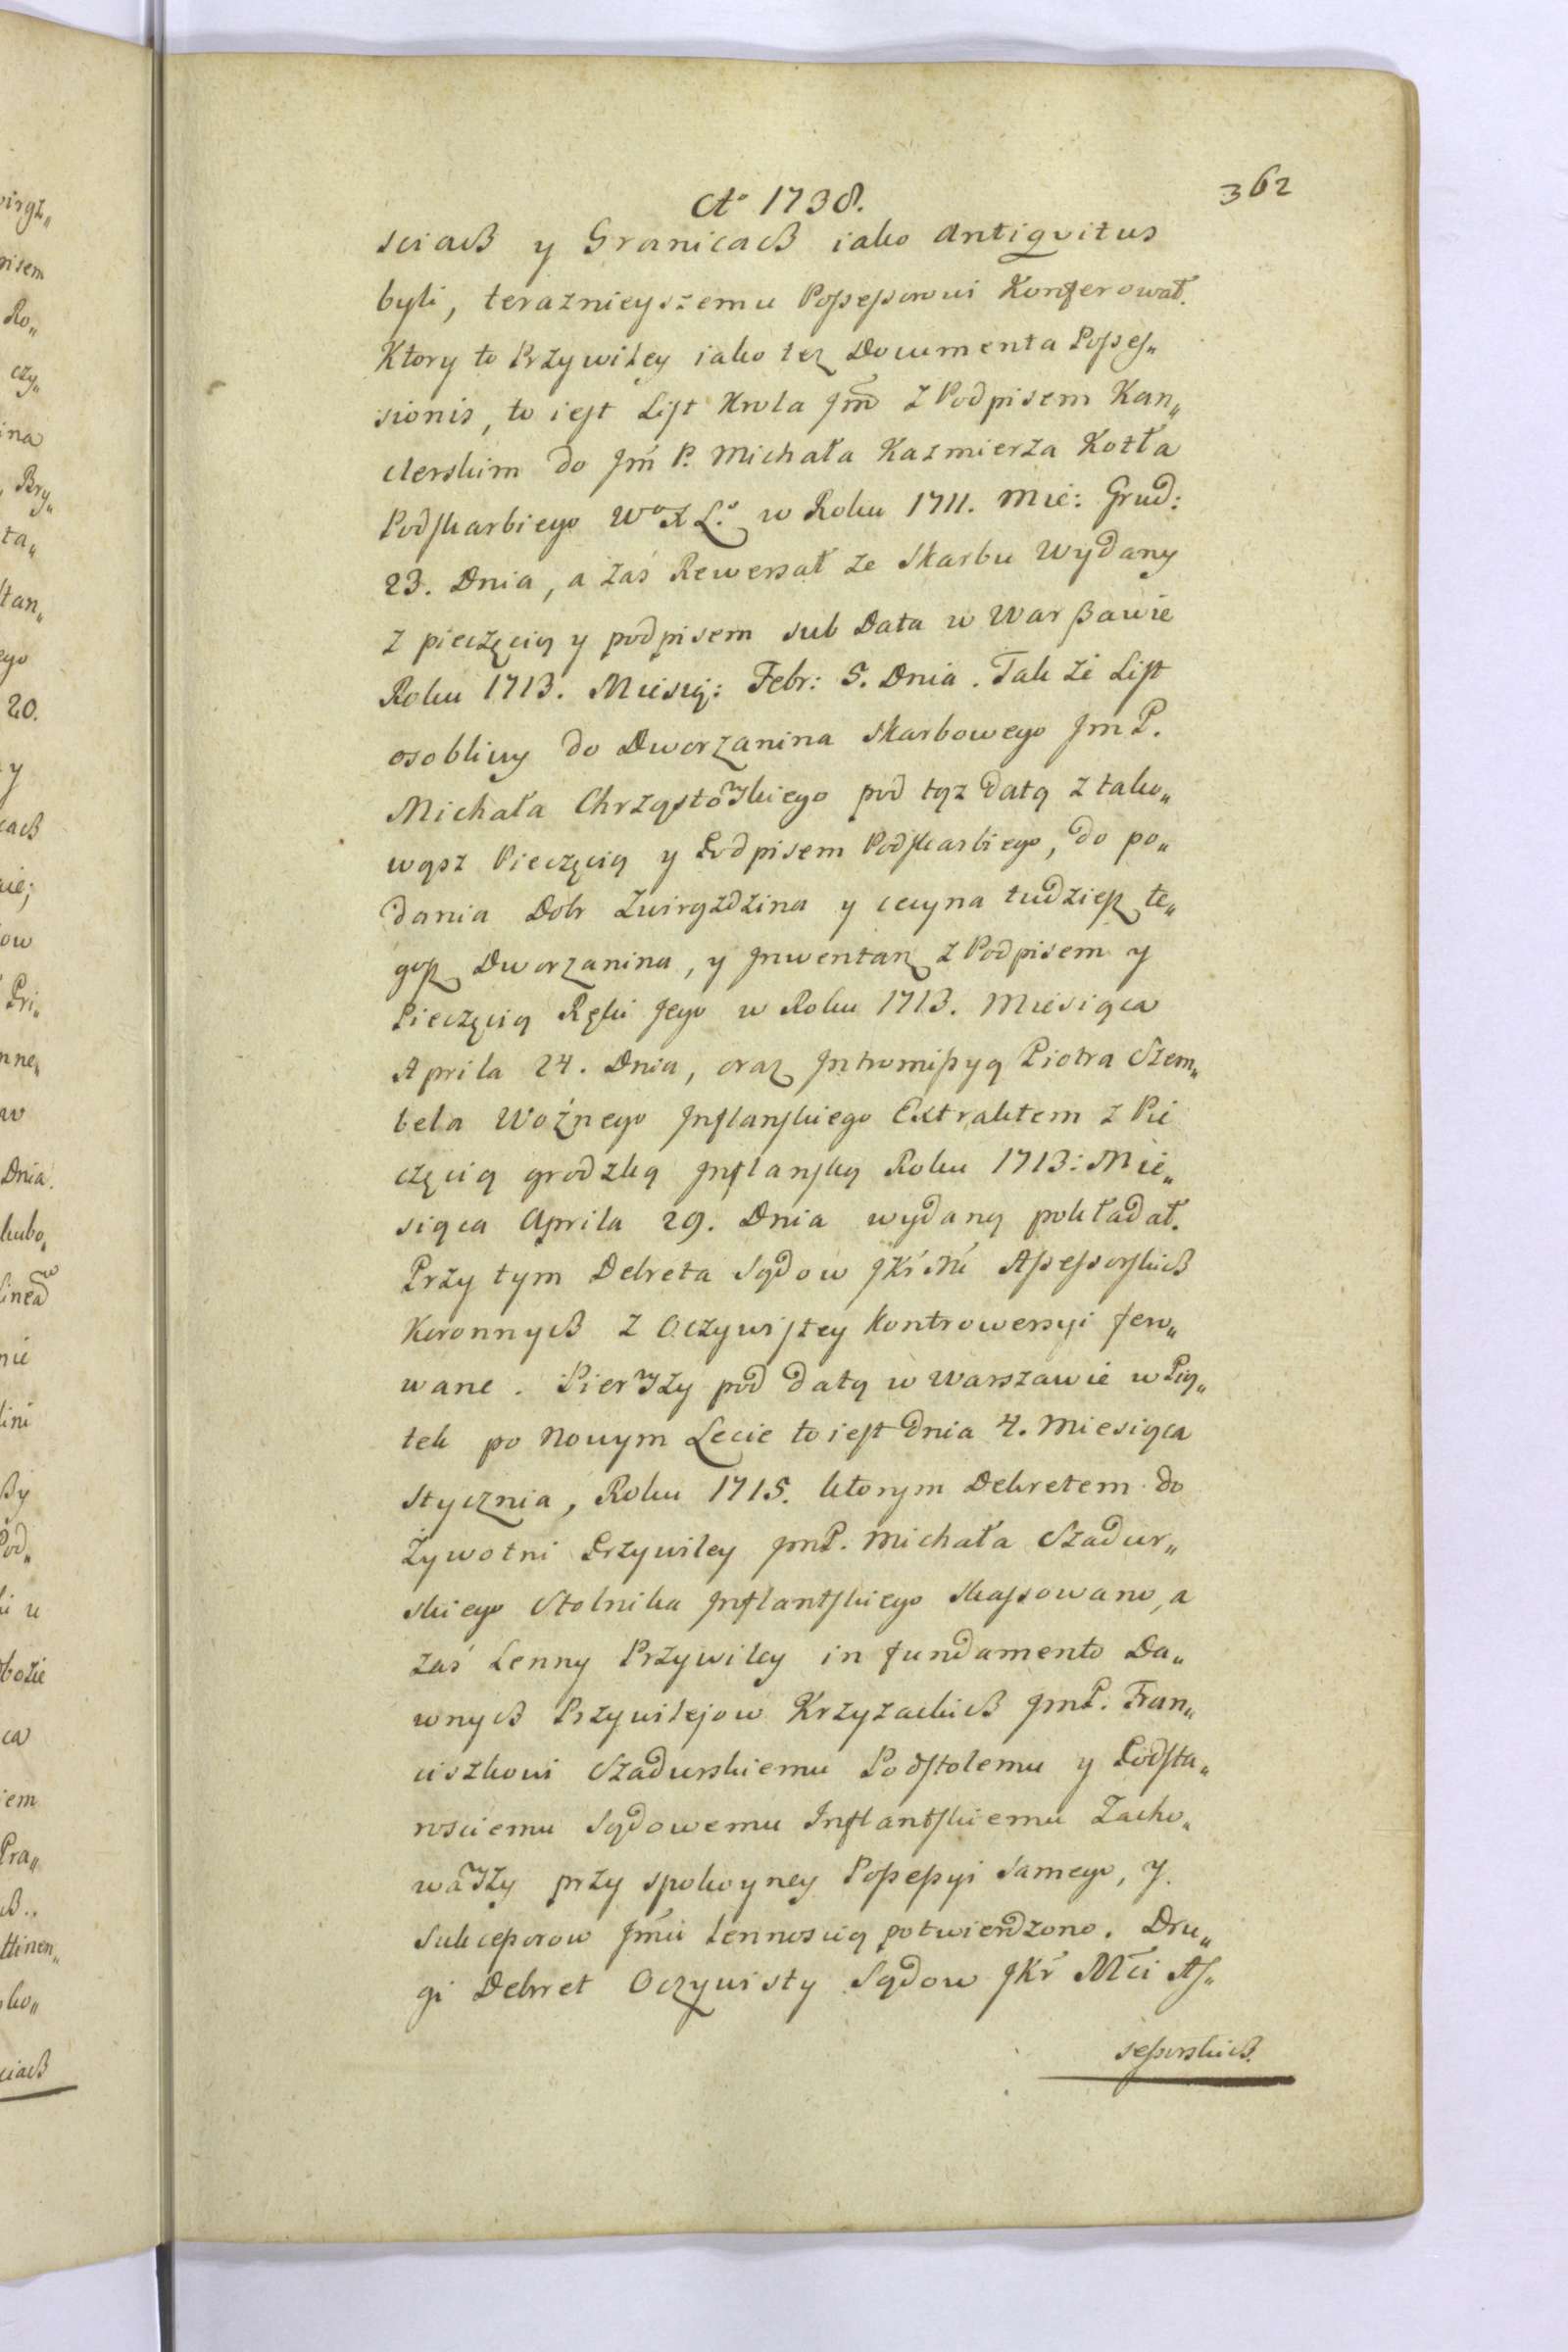 Ao 1738.
362
sciach y Granicach iako Antiqvitus
byli, teraznieyszemu Possessorowi Konferował.
Ktory to Przywiley iako tez Documenta Posses„
sionis, to iest List Krola Jmō z Podpisem Kan„
clerskim do Jm̃ P. Michała Kazmierza Kotła
Podskarbiego Wo X Lo: w Roku 1711. Mie: Grud:
23. Dnia, a zaś Rewersał ze Skarbu Wydany
z pieczęcią y podpisem sub Data w Warszawie
Roku 1713. Miesią: Febr: 5. Dnia. Tak ze List
osobliwy do Dworzanina Skarbowego Jm P.
Michała Chrząstowskiego pod tąz datą z tako„
wąsz Pieczęcią y Podpisem Podskarbiego, do po„
dania Dobr Zwirgzdzina y Cecyna tudziesz te„
gosz Dworzanina, y Jnwentarz z Podpisem y
Pieczęcią Ręki Jego w Roku 1713. Miesiąca
Aprila 24. Dnia, oraz Jntromissyą Piotra Szem„
bela Woźnego Jnflanskiego Extraktem z Pie
częcią grodzką Jnflanską Roku 1713: Mie„
siąca Aprila 29. Dnia wydaną pokładał.
Przy tym Dekreta Sądow JKr Mć Assessorskich
Koronnych z Oczywistey Kontrowersyi fero„
wane. Pierwszy pod datą w Warszawie w Pią„
tek po Nowym Lecie to iest dnia 4. Miesiąca
Stycznia, Roku 1715. ktorym Dekretem do
Zywotni Przywiley JmP. Michała Szadur„
skiego Stolnika Jnflantskiego skassowano, a
zaś Lenny Przywiley in fundamento Da„
wnych Przywilejow Krzyzackich JmP. Fran„
ciszkowi Szadurskiemu Podstolemu y Podsta„
rosciemu Sądowemu Inflantskiemu Zacho„
wawszy przy spokoyney Possessyi Samego, y
Sukcessorow Jm̃ci lennoscią potwierdzono. Dru„
gi Dekret Oczywisty Sądow JKr̃ Mc̃i As„
sessorskich.